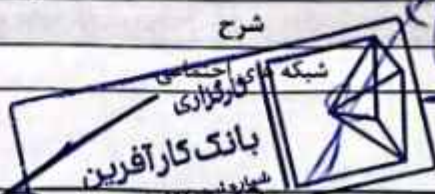 شرح
شبکه های اجتماعی
کارگزاری
بانک کارآفرین